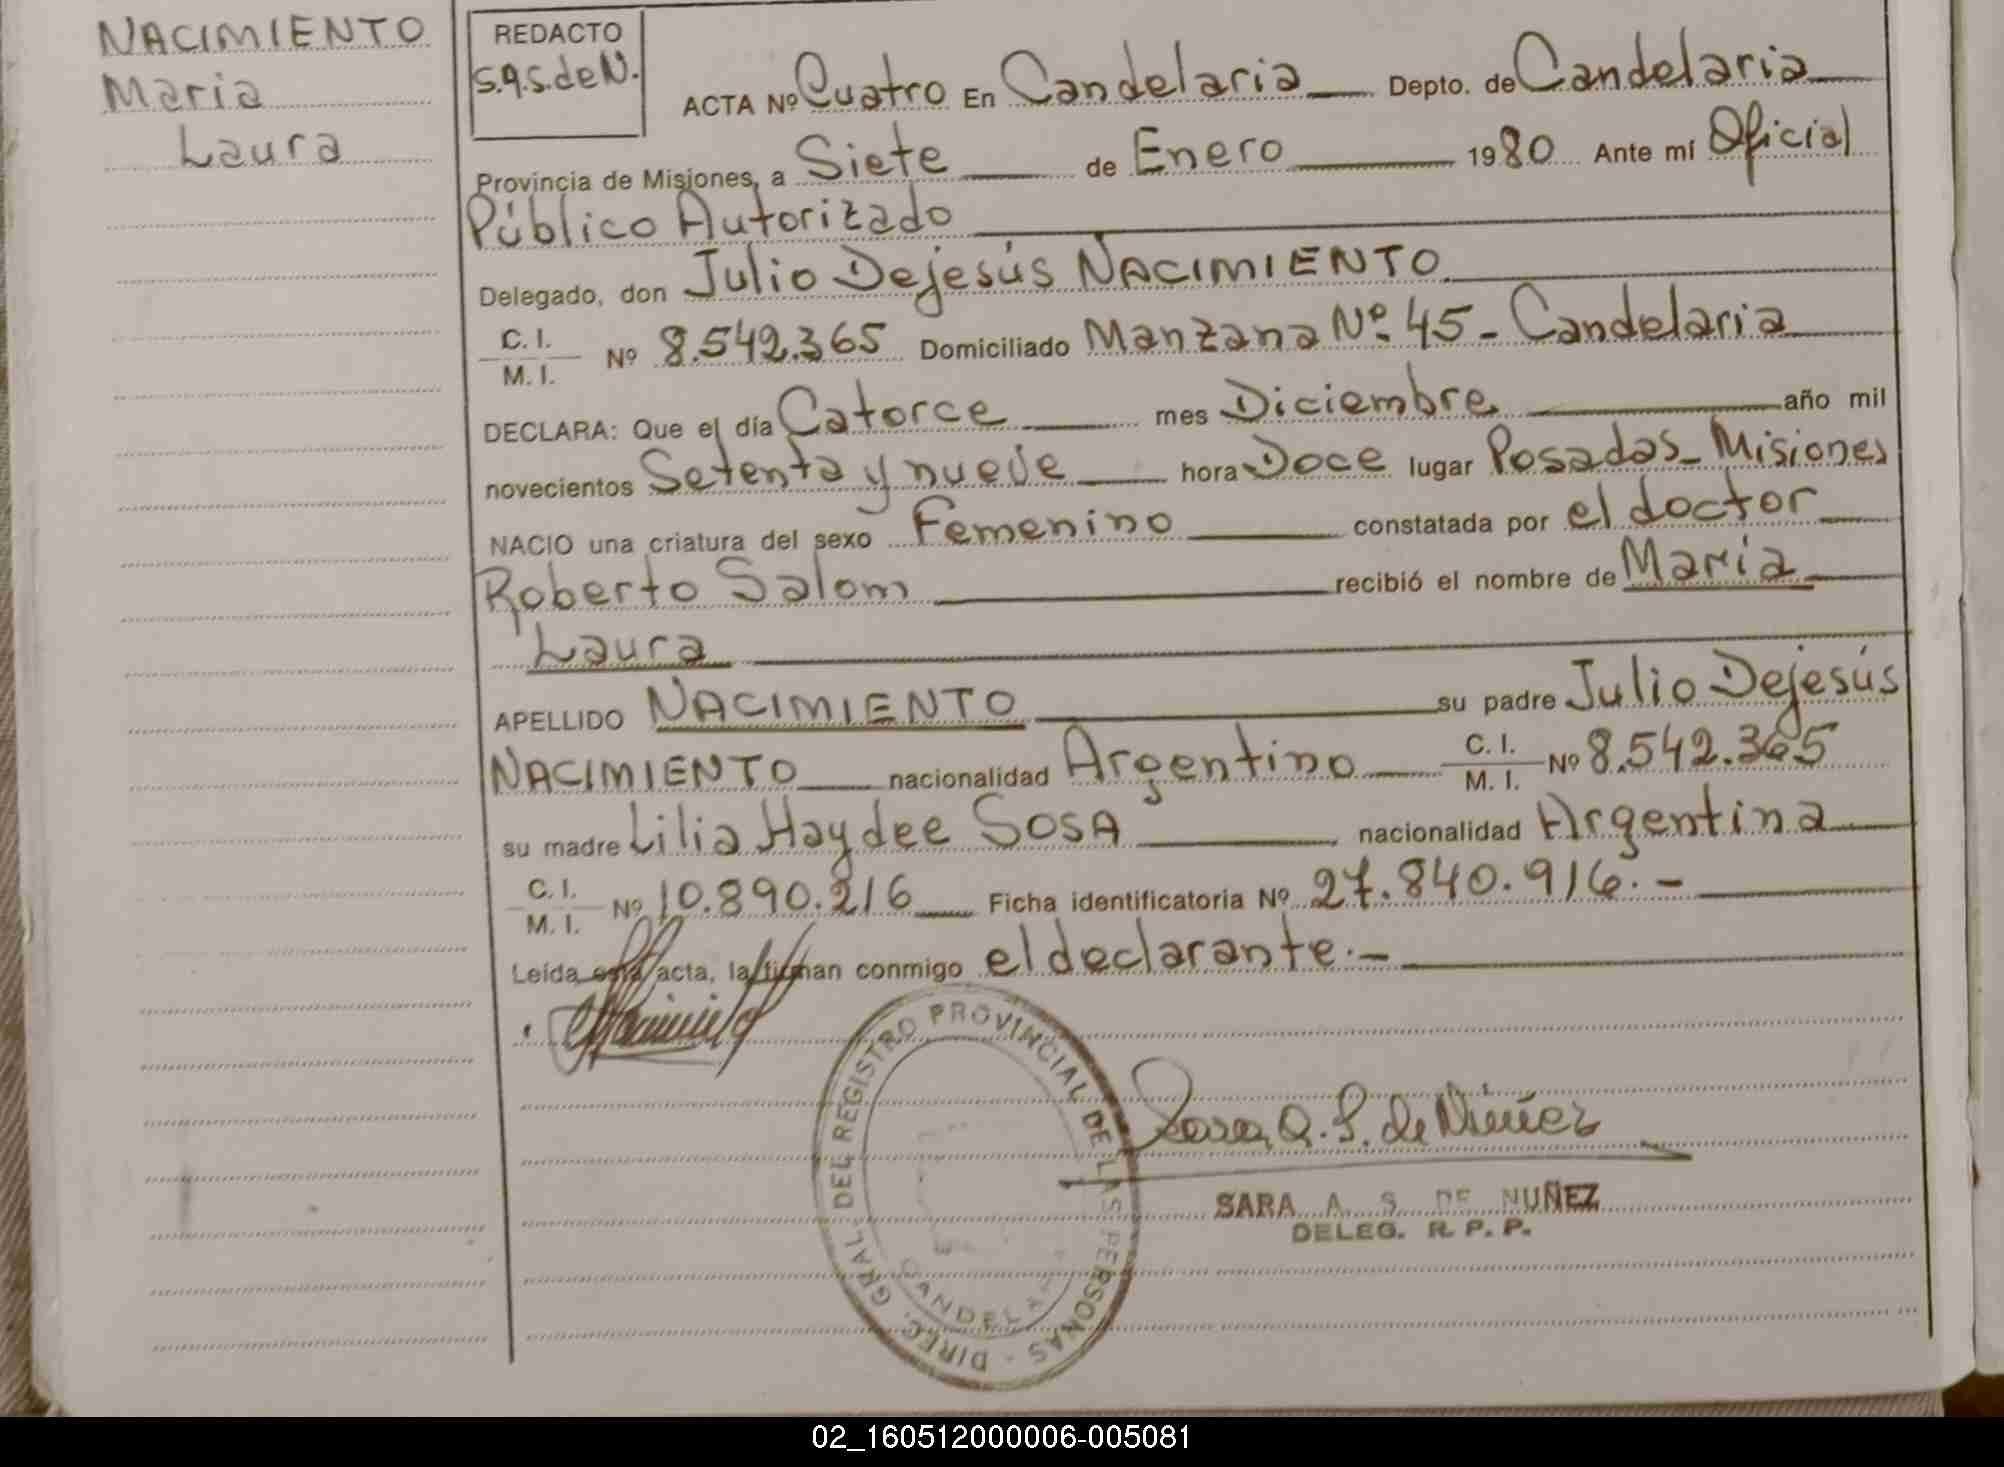 NACIMIENTO
Maria
Laura
REDACTO
S.q.S.de N.
ACTA Nº Cuatro En Candelaria Depto. de Candelaria
Provincia de Misiones, a Siete de Enero 1980 Ante mí Oficial
Público Autorizado
Delegado, don Julio Dejesús NACIMIENTO
C. I.
M. I. Nº 8.542.365 Domiciliado Manzana Nº 45 - Candelaria
DECLARA: Que el día Catorce mes Diciembre año mil
novecientos Setenta y nueve hora Doce lugar Posadas - Misiones
NACIO una criatura del sexo Femenino constatada por el doctor
Roberto Salom recibió el nombre de María
Laura
APELLIDO NACIMIENTO su padre Julio Dejesús
NACIMIENTO nacionalidad Argentino C. I.
M. I. Nº 8.542.365
su madre Lilia Haydee SOSA nacionalidad Argentina
C. I.
M. I. Nº 10.890.216 Ficha identificatoria Nº 27.840.916.-
Leída esta acta, la firman conmigo el declarante.-
DIREC. GRAL. DEL REGISTRO PROVINCIAL DE LAS PERSONAS -
Sara Q. S. de Núñez
SARA A. S. DE NUÑEZ
DELEG. R. P. P.
02_160512000006-005081